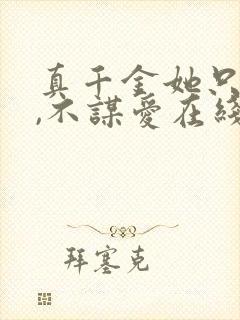 真千金她只
,不謀愛在綫
拜塞克